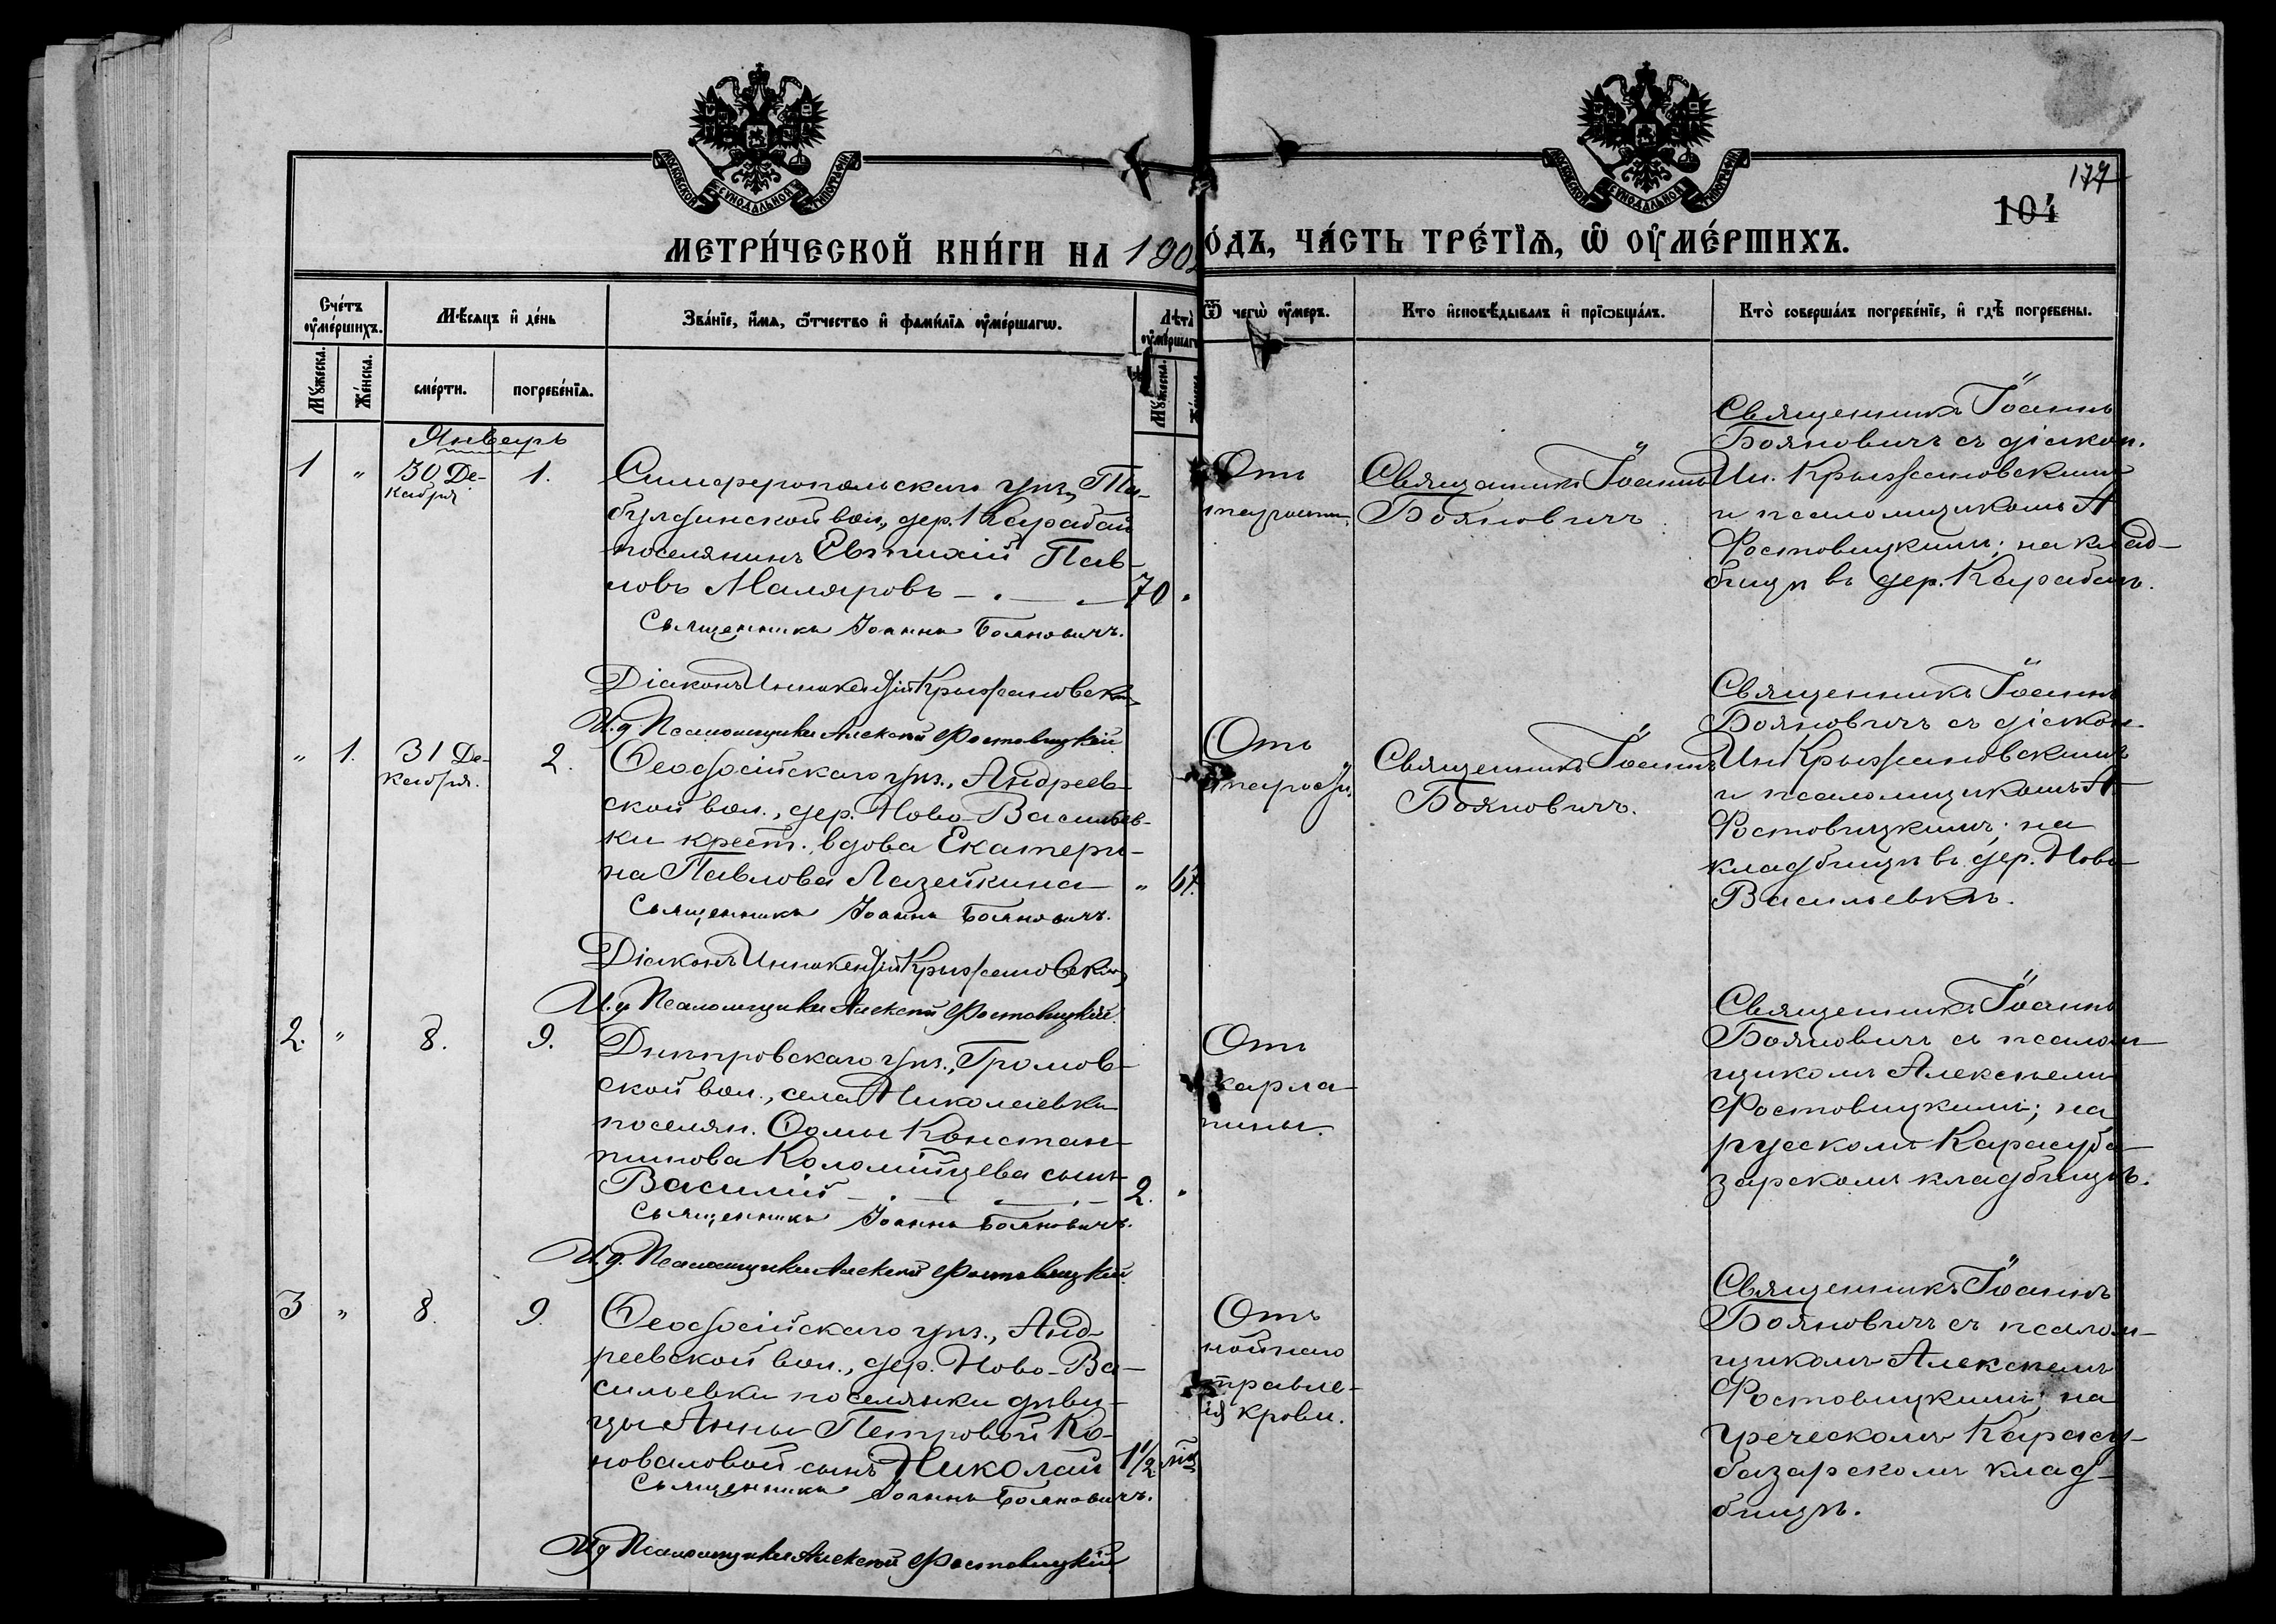 МОСКОВСКОЙ СѴНОДАЛЬНОЙ ТИПОГРАФІИ
МОСКОВСКОЙ СѴНОДАЛЬНОЙ ТИПОГРАФІИ
177
104
МЕТРИ́ЧЕСКОЙ КНИ́ГИ НА 190
О́ДЪ, ЧА́СТЬ ТРЕ́ТЇѦ, Ѡ҆ ОУ҆МЕ́РШИХЪ.
Сче́тъ оу҆ме́ршихъ.
Мꙋ́жеска.
Же́нска.
Мѣ́сяцъ и҆ де́нь
сме́рти.
погребе́нїѧ.
Зва́нїе, и҆́мѧ, ѻ҆́тчество и҆ фами́лїѧ оу҆ме́ршагѡ.
Лѣта̀ оу҆ме́ршаг
Мꙋ́жеска.
Ѿ чегѡ̀ оу҆́меръ.
Кто̀ и҆сповѣ́дывалъ и҆ прїѡбща́лъ.
Кто̀ соверша́лъ погребе́нїе, и҆ гдѣ̀ погребены.
Январь
1 " 30 Де-
кабря
1.
Симферопольскаго уѣз., Та-
булдинской вол., дер. Карабай
поселянинъ Евтихій Пав-
ловъ Маляровъ 70 "
Священникъ Іоаннъ Бояновичъ.
Діаконъ Иннокентій Крыжановскій
И. д. Псаломщика Алексѣй Фостовицкій
Отъ
старости.
Священникъ Іоаннъ
Бояновичъ
Священникъ Іоаннъ
Бояновичъ съ діакон.
Ин. Крыжановскимъ
и псаломщикомъ А
Фостовицкимъ; на клад-
бищѣ въ дер. Карабаѣ.
" 1. 31 Де-
кабря.
2.
Ѳеодосійскаго уѣз., Андреев-
ской вол., дер. Ново-Васильев-
ки крест. вдова Екатери-
на Павлова Лазейкина " 67.
Священникъ Іоаннъ Бояновичъ.
Діаконъ Иннокентій Крыжановскій
И. д. Псаломщика Алексѣй Фостовицкій.
Отъ
старости
Священникъ Іоаннъ
Бояновичъ.
Священникъ Іоаннъ
Бояновичъ съ діакон-
Ин Крыжановскимъ
и псаломщикомъ А
Фостовицкимъ; на
кладбищѣ въ дер. Ново
Васильевкѣ.
2. " 8. 9.
Днѣпровскаго уѣз., Громов-
ской вол., села Николаевки
поселян. Ѳомы Констан-
тинова Коломійцева сынъ
Василій 2. "
Священникъ Іоаннъ Бояновичъ.
И. д. Псаломщика Алексѣй Фостовицкій.
Отъ
скарла-
тины.
Священникъ Іоаннъ
Бояновичъ съ псалом-
щикомъ Алексѣемъ
Фостовицкимъ; на
русскомъ Карасуба-
зарскомъ кладбищѣ.
3 " 8. 9.
Ѳеодосійскаго уѣз., Анд-
реевской вол., дер. Ново-Ва-
сильевки поселянки дѣви-
цы Анны Петровой Ко-
новаловой сынъ Николай 1 1/2
Священникъ Іоаннъ Бояновичъ.
И д Псаломщика Алексѣй Фостовицкій
Отъ
крови.
Священникъ Іоаннъ
Бояновичъ съ псалом-
щикомъ Алексѣемъ
Фостовицкимъ; на
греческомъ Карасу-
базарскомъ клад-
бищѣ.